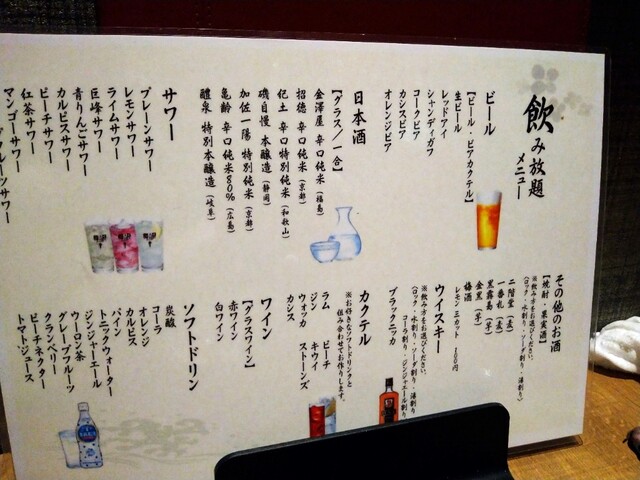 飲み放題
メニュー
ビール
【ビール・ビアカクテル】
生ビール
レッドアイ
シャンディガフ
コークビア
カシスビア
オレンジビア
日本酒
【グラス/一合】
金澤屋 辛口純米(福島)
招德 辛口純米(京都)
紀土 辛口特別純米(和歌山)
磯自慢 本醸造(静岡)
加佐一陽 特別純米(京都)
亀齢 辛口純米80%(広島)
醴泉 特別本醸造(岐阜)
サワー
プレーンサワー
レモンサワー
ライムサワー
巨峰サワー
青りんごサワー
カルピスサワー
ピーチサワー
紅茶サワー
マンゴーサワー
フルーツサワー
その他のお酒
【焼酎・果実酒】
※飲み方をお選びください。
(ロック・水割り・ソーダ割り・湯割り)
二階堂(麦)
一番札(麦)
黒霧島(芋)
金黒(芋)
梅酒
レモン三日カット 100円
ウイスキー
※飲み方をお選びください。
(ロック・水割り・ソーダ割り・湯割り
コーラ割り・ジンジャエール割り)
ブラックニッカ
カクテル
※お好きなソフトドリンクと
組み合わせてお作りします。
ラム ピーチ
ジン キウイ
ウォッカ ストーンズ
カシス
ワイン
【グラスワイン】
赤ワイン
白ワイン
ソフトドリン
炭酸
コーラ
オレンジ
カルピス
パイン
トニックウォーター
ジンジャーエール
ウーロン茶
グレープフルーツ
クランベリー
ピーチネクター
トマトジュース